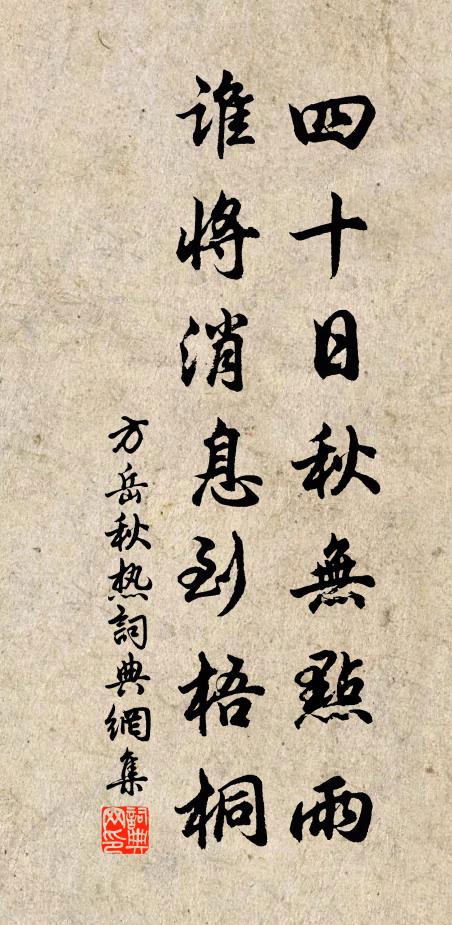 四十日秋無點雨
誰將消息到梧桐
方岳秋热詞典網集
詞典网印